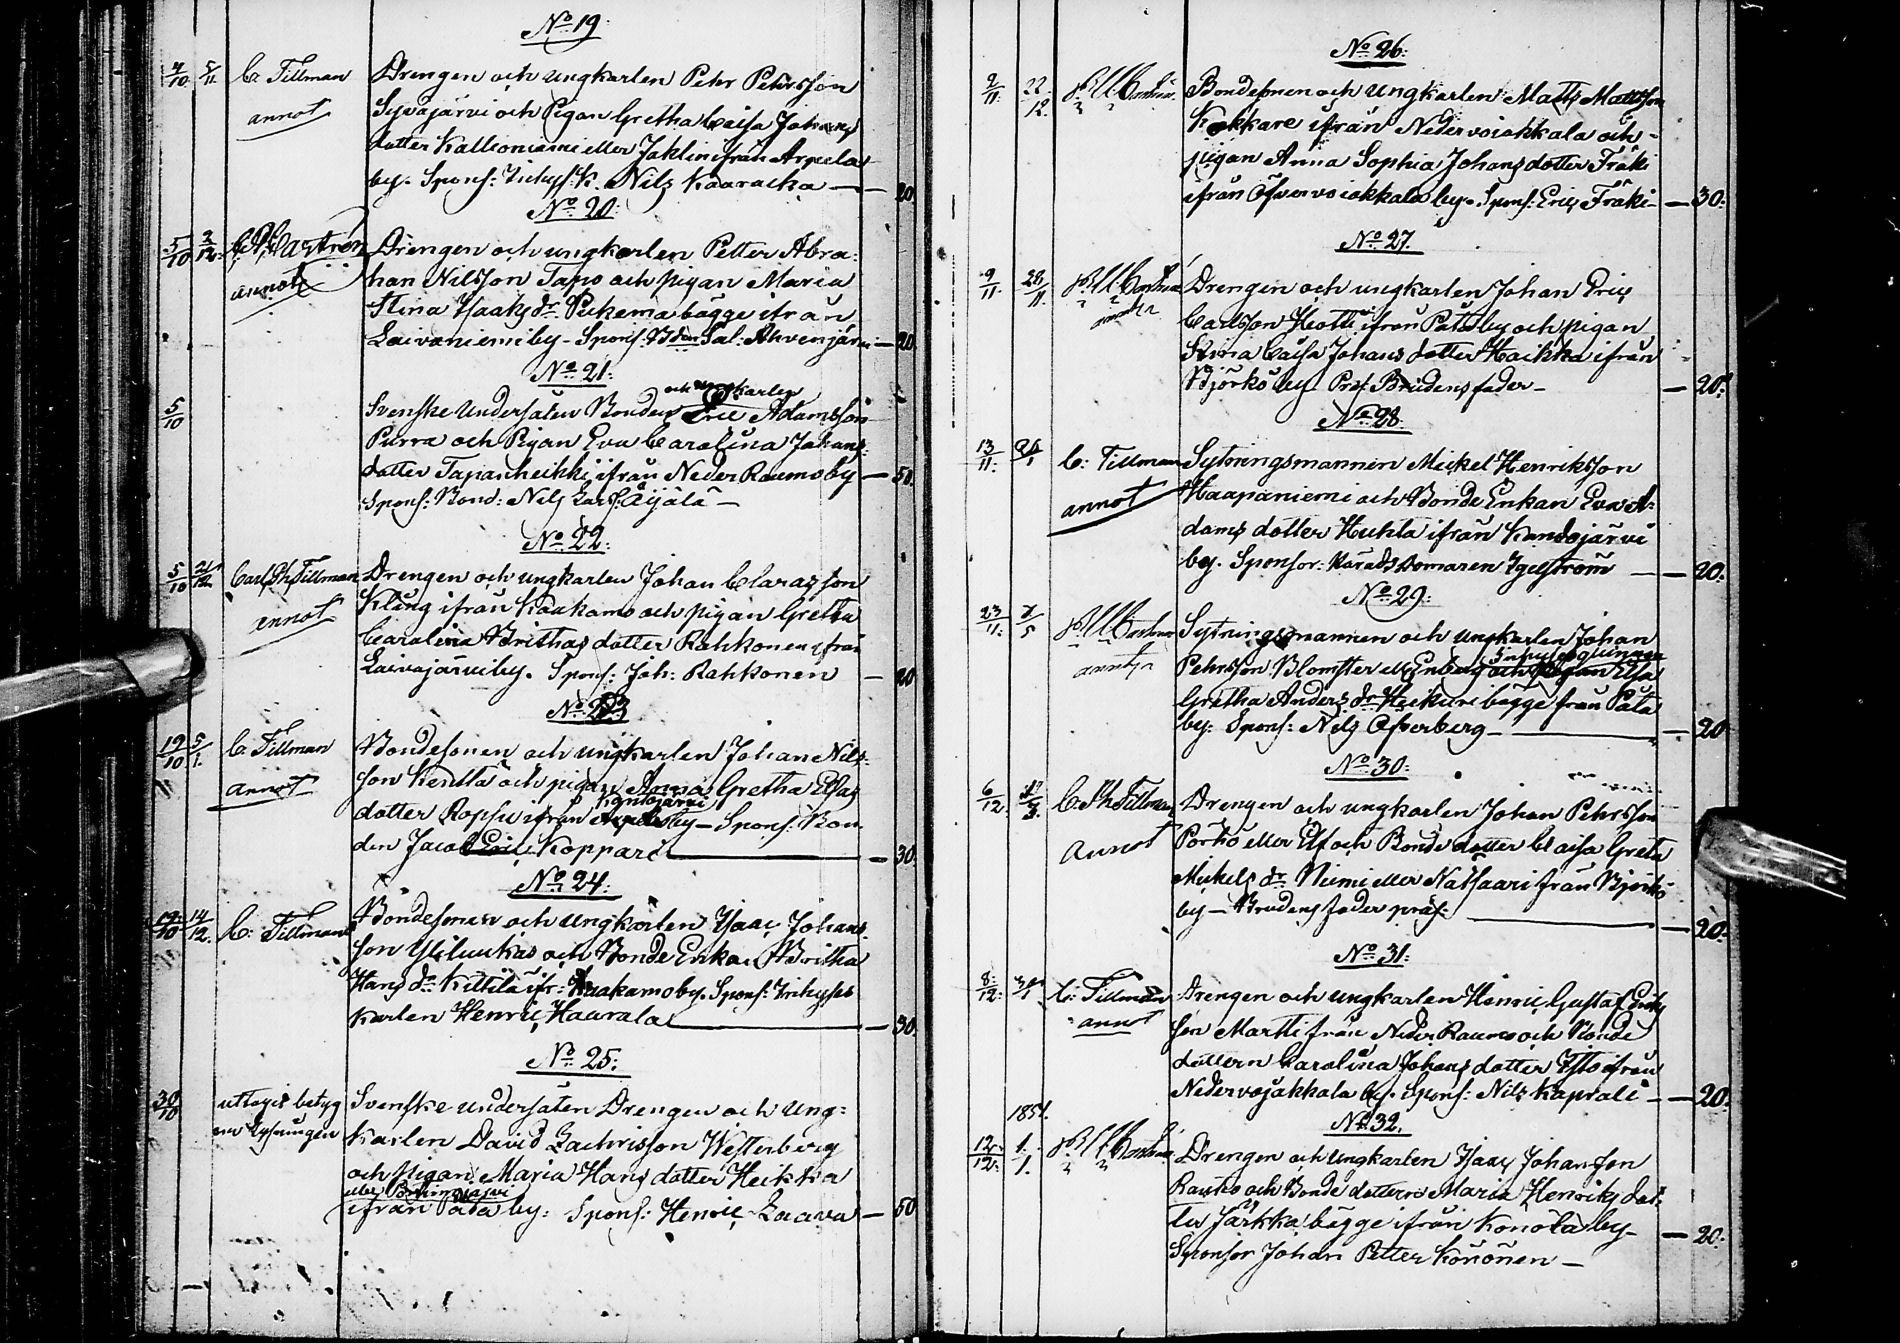 No 19:
4/10 5/11 C: Tillman Drengen och ungkarlen Pehr Pehrsson
annot Syväjärvi och Pigan Gretha Caisa Johans
dotter Kallioniemi eller Jaklin ifrån Arpela
by. Spons: K. Nils Kaaracka — 20
No 20:
5/10 2/12 Castrén Drengen och ungkarlen Petter Abra-
annot ham Nilsson Tapio och pigan Maria
Stina Isaaks dr ifrån
Laivaniemi by - Spons: Sal: Ahvenjärvi — 20
No 21:
och ungkarlen
5/10 Svenske undersåten Bonden Eric Adamsson
Purra och Pigan Eva Carolina Johans
dotter Tapanheikki ifrån Neder Raumo by — 50.
Spons: Bond: Nils Äijälä —
No 22:
5/10 Carl Ph Tillman Drengen och ungkarlen Johan Clarason
annot Kling ifrån Kaakamo och pigan Gretha
Carolina Brithas dotter Rahkonen ifrån
Laivajärvi by. Spons: Joh: Rahkonen — 20
No 23
19/10 5/1. C. Tillman Bondesonen och ungkarlen Johan Nils-
annot son Kenttä och pigan Anna Gretha Elsas
Kantojärvi
dotter ifrån by — Spons: Bon
den Jacob Koppari — 30.
No 24:
19/10 14/12. C: Tillman Bondesonen och ungkarlen Isaac Johans
son Yliluukas och Bonde Enkan Britha
Hans dr Kittilä ifr: Kaakamo by. Spons:
karlen Henric Haurala — 30.
No 25:
30/10 uttagit betyg Svenske undersåten Drengen och Ung=
om lysningen karlen David Zachrisson Westerberg
och pigan Maria Hans dotter Heikka
eller
ifrån by: Spons: Henric Laava — 50
No 26:
9/11. 22/12. Bondesonen och Ungkarlen Matts Mattsson
Kokkare ifrån Nedervojakkala och
pigan Anna Sophia Johans dotter Fräki
ifrån Öfvervojakkala by. Spons: Eric Fräki — 30:
No 27.
9/11. 28/11. Drengen och ungkarlen Johan Eric
Carlsson ifrån Pata by och pigan
Stina Caisa Johans dotter Haikka ifrån
Björkö by Pres: Brudens fader — 20:
No 28.
13/11. C: Tillman Sytningsmannen Mickel Henriksson
annot Haapaniemi och Bonde Enkan Eva A-
dams dotter Huhta ifrån Kandojärvi
by. Sponsor: Häradsdomaren Igelström — 20.
No 29:
23/11: 7/5 Sytningsmannen och ungkarlen Johan
Pehrsson Blomster ell Enberg och pigan Elsa
Gretha Anders dr Heikuri bägge från Pata
by: Spons: Nils Ofverberg — 20
No 30:
6/12: C. Ph Tillman Drengen och ungkarlen Johan Pehrsson
Annot Pörhö eller Elf och Bonde dotter Caisa Greta
Mickels dr Niemi eller ifrån Björkö
by — Brudens fader præs: — 20:
No 31:
8:/12: C: Tillman Drengen och Ungkarlen Henric Gustaf Erics
annot son Martti från Neder Raumo och Bonde
dottern Carolina Johans dotter Ylto ifrån
Nedervojakkala by. Spons: Nils Kaprali — 20:
1851.
No 32.
12:/12: 1./1. Drengen och Ungkarlen Isaac Johansson
Rauho och Bonde dottern Maria Henriks dot-
ter Järkkä bägge ifrån Konola by —
Sponsor Johan Petter Könönen — 20: